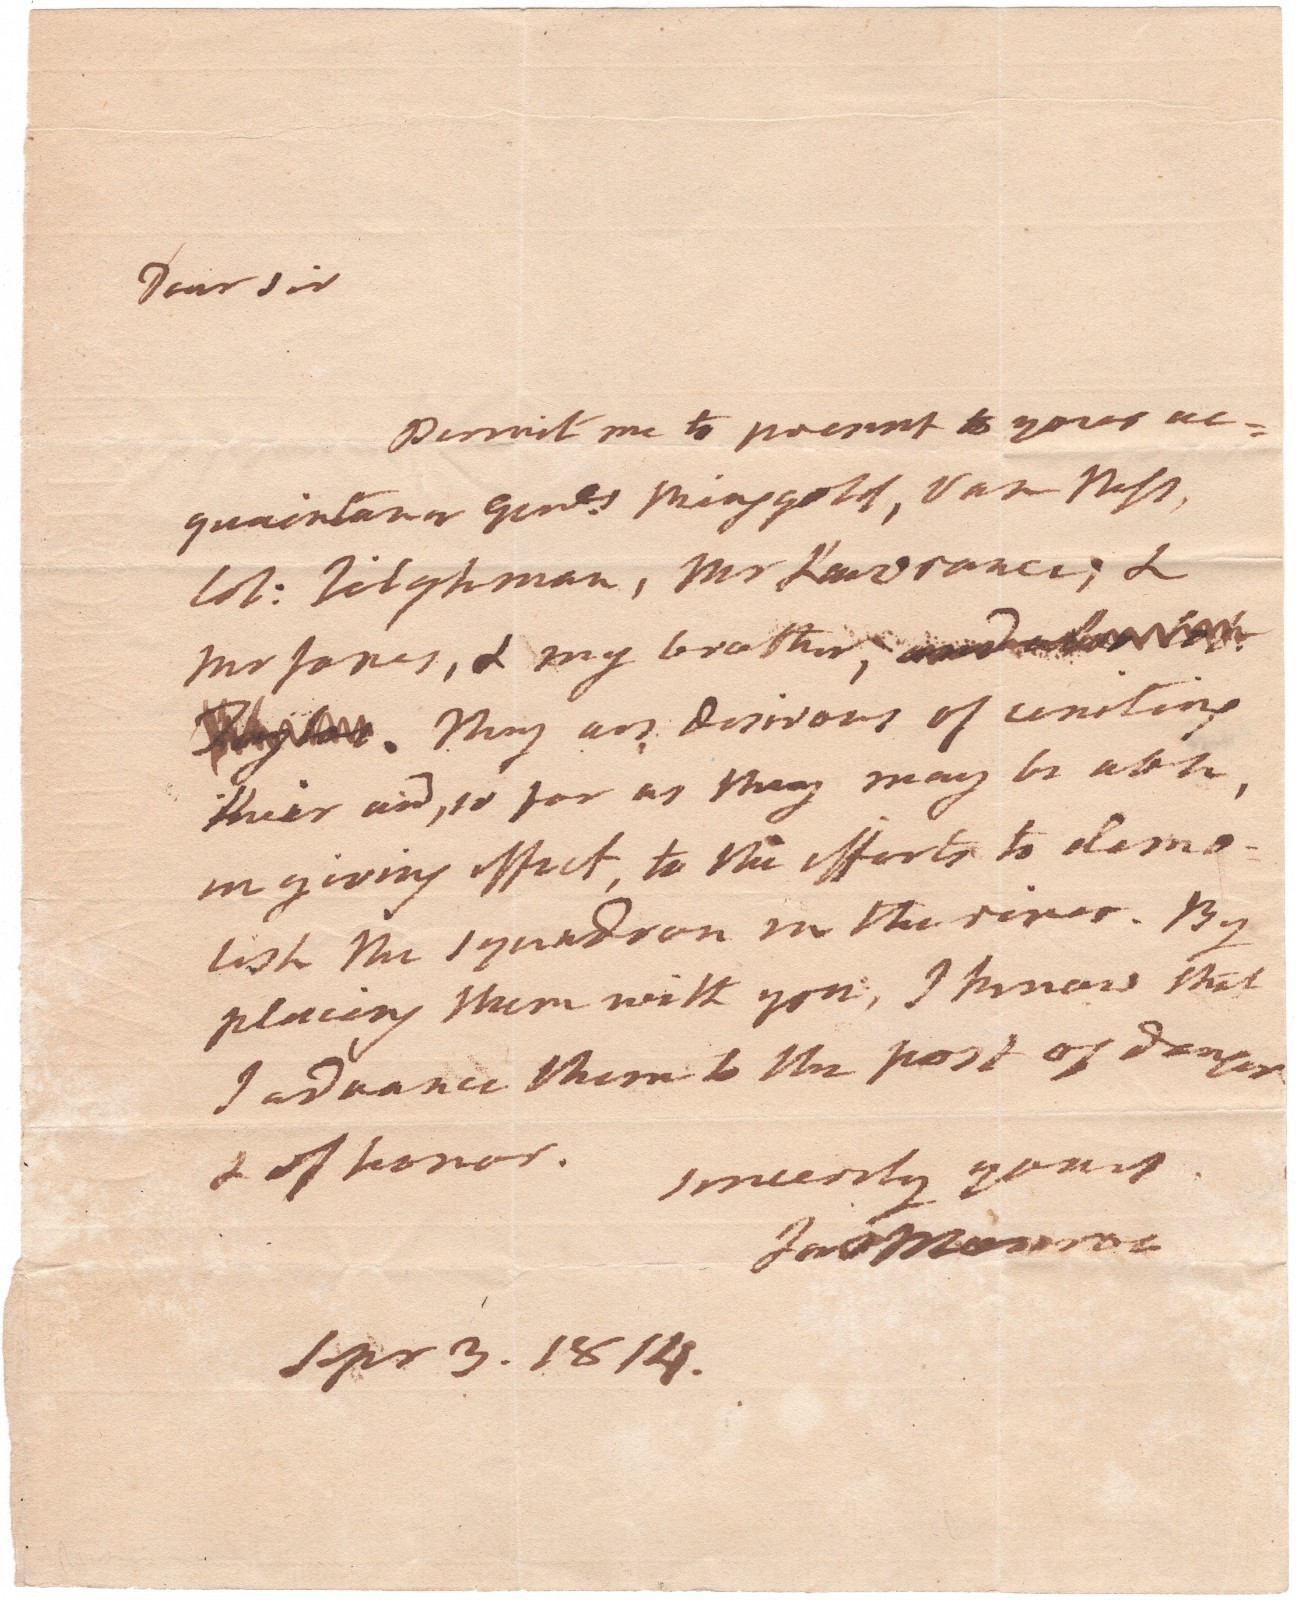 Dear Sir
Permit me to present to your ac=
quaintance Genls Ringgold, Van Ness,
Col: Tilghman, Mr Lawrance, &
Mr Jones, & my brother,
They are desirous of uniting
their aid, so far as they may be able,
in giving effect, to the efforts to demo-
lish the squadron in the river. By
placing them with you, I know that
I advance them to the post of danger
& of honor.
sincerely yours
Jas Monroe
Sepr 3. 1814.